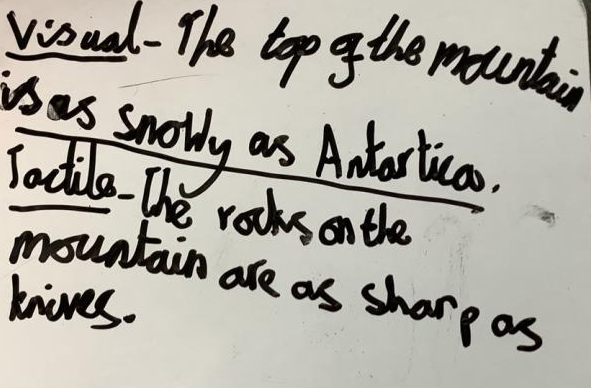 Visual - The top of the mountain
is as snowy as Antartica.
Tactile - The rocks on the
mountain are as sharp as
knives.